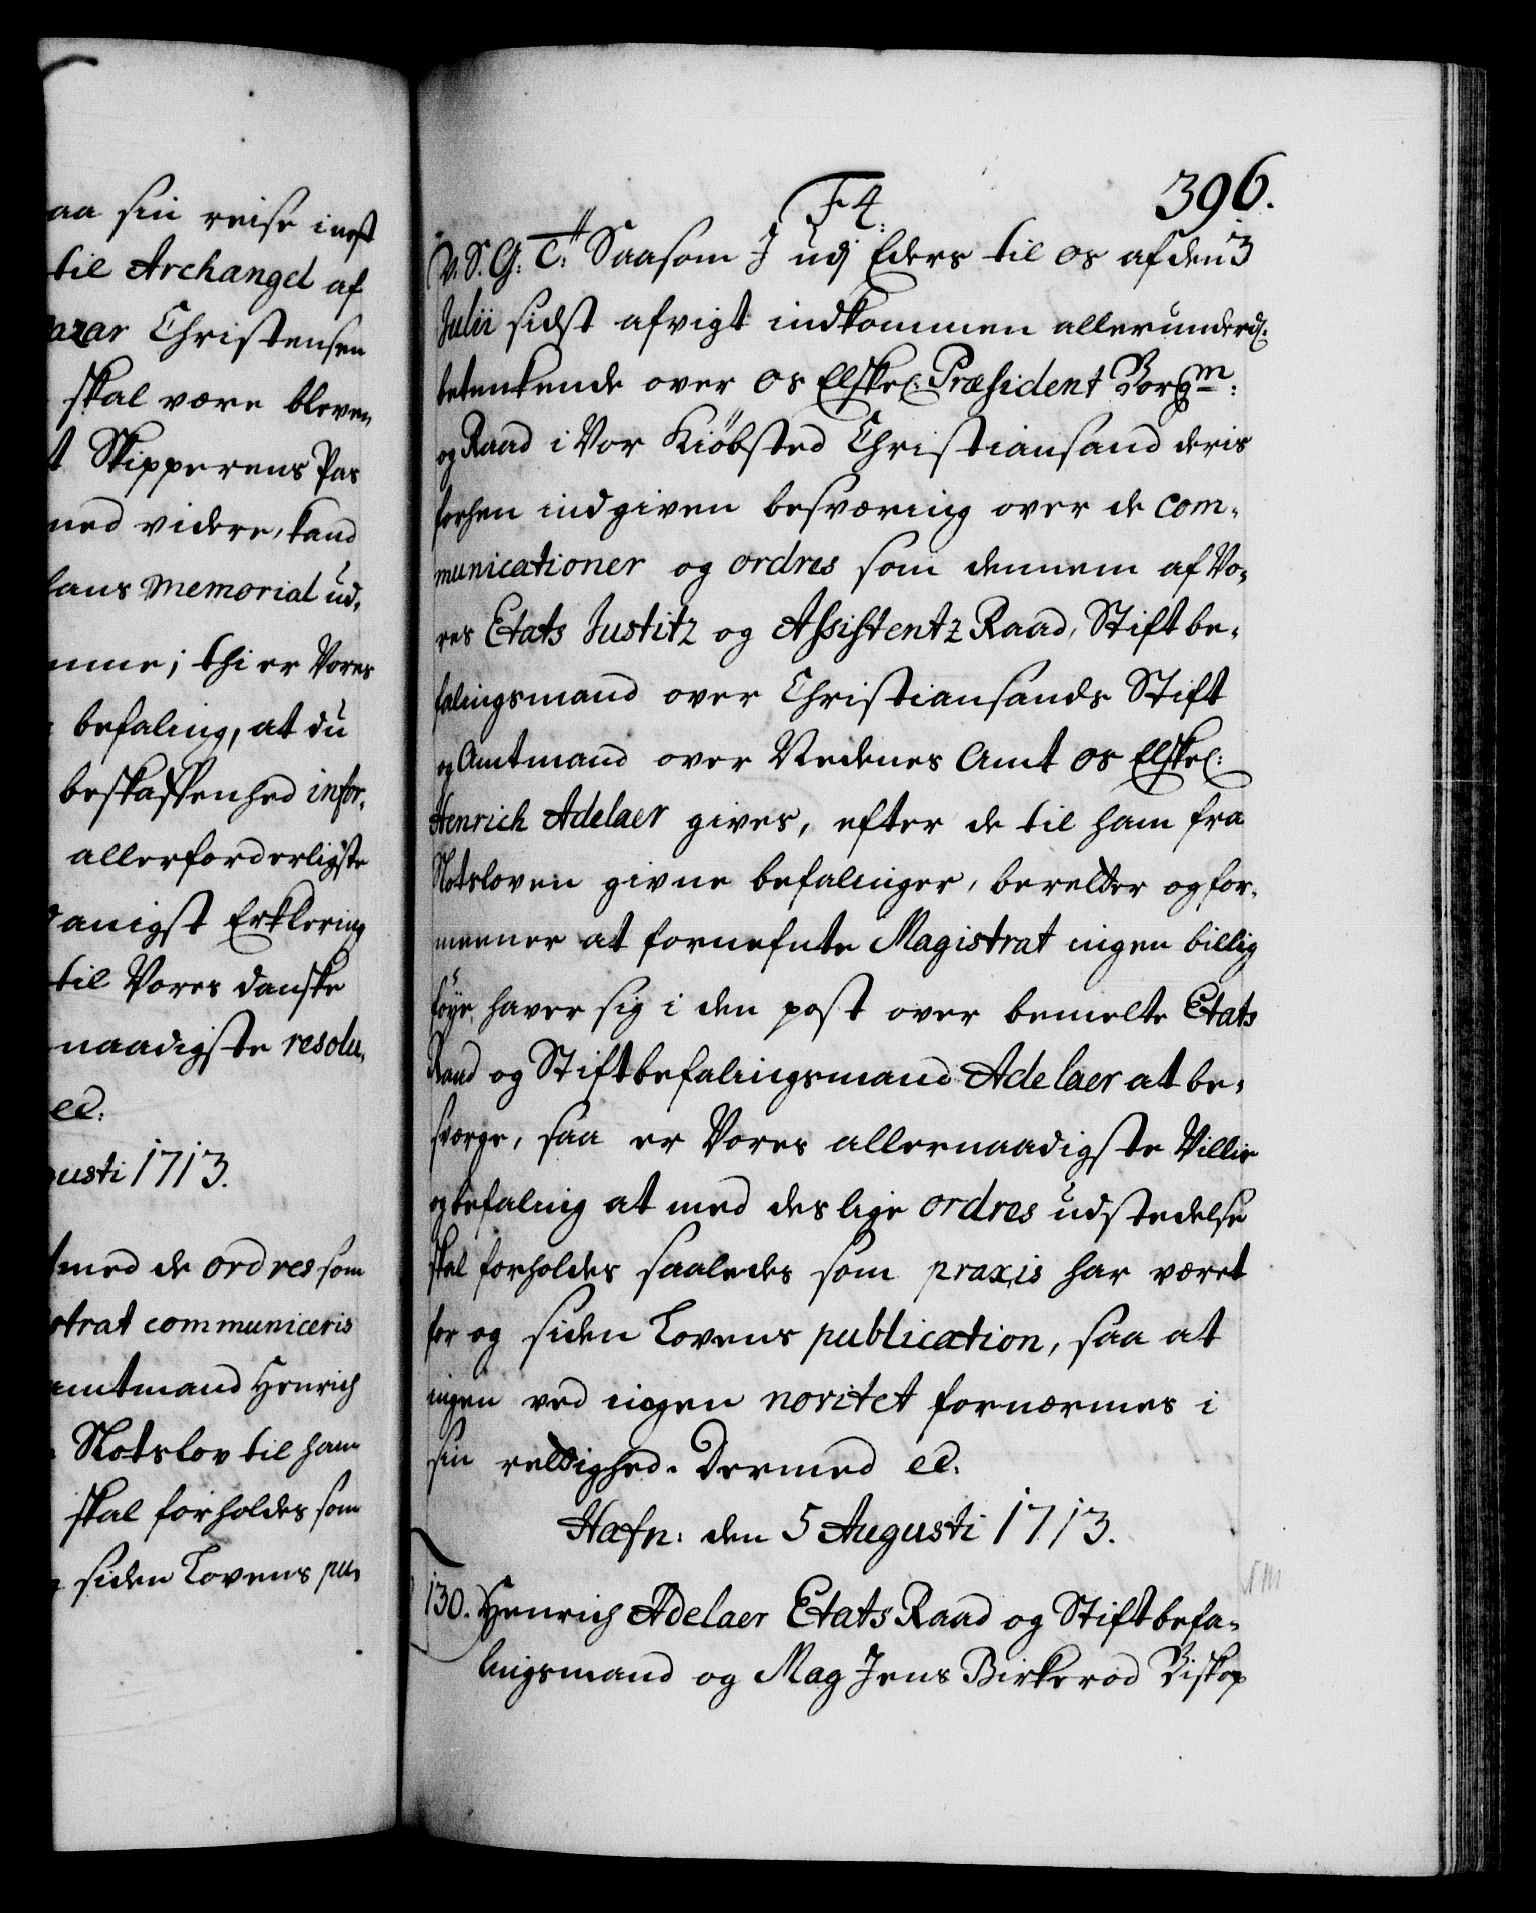 aa sin reise inest
til Archangel af
azar Christensen
skal være bleven
t Skipperens Pas
med videre, kand
hans Memorial ud,
mme; thi er Vores
befaling, at du
beskaffenhed infor,
allerforderligste
danigst Erklering
til Vores danske
naadigste resolu,
ec:
gusti 1713.
med de ordres som
strat communiceris
amtmand Henrich
Slotslov til ham
skal forholdes som
siden Lovens pu,
F 4.
396.
V. S. G. T. Saasom I udj Eders til os af den 3
Julii sidst afvigt indkommen allerunderd:
betenkende over os Elskel: Præsident Borgm:
og Raad i Vor Kiöbsted Christiansand deris
forhen indgiven besværing over de com,
municationer og ordres som dennem af Vo,
res Etats Justitz og Assistentz Raad, Stiftbe,
falingsmand over Christiansands Stift
og Amtmand over Nedenes Amt os Elskel:
Henrich Adelaer gives, efter de til ham fra
Slotsloven givne befalinger, beretter og for,
meener at fornefnte Magistrat ingen billig
föye haver sig i den post over bemelte Etats
Raad og Stiftbefalingsmand Adelaer at be,
sværge, saa er Vores allernaadigste Villie
og befaling at med deslige ordres udstedelse
skal forholdes saaledes som praxis har været
for og siden Lovens publication, saa at
ingen ved nogen novitet fornærmes i
sin rettighed. Dermed ec.
Hafn: den 5 Augusti 1713.
130. Henrich Adelaer Etats Raad og Stiftbefa,
lingsmand og Mag Jens Birkerod Biskop